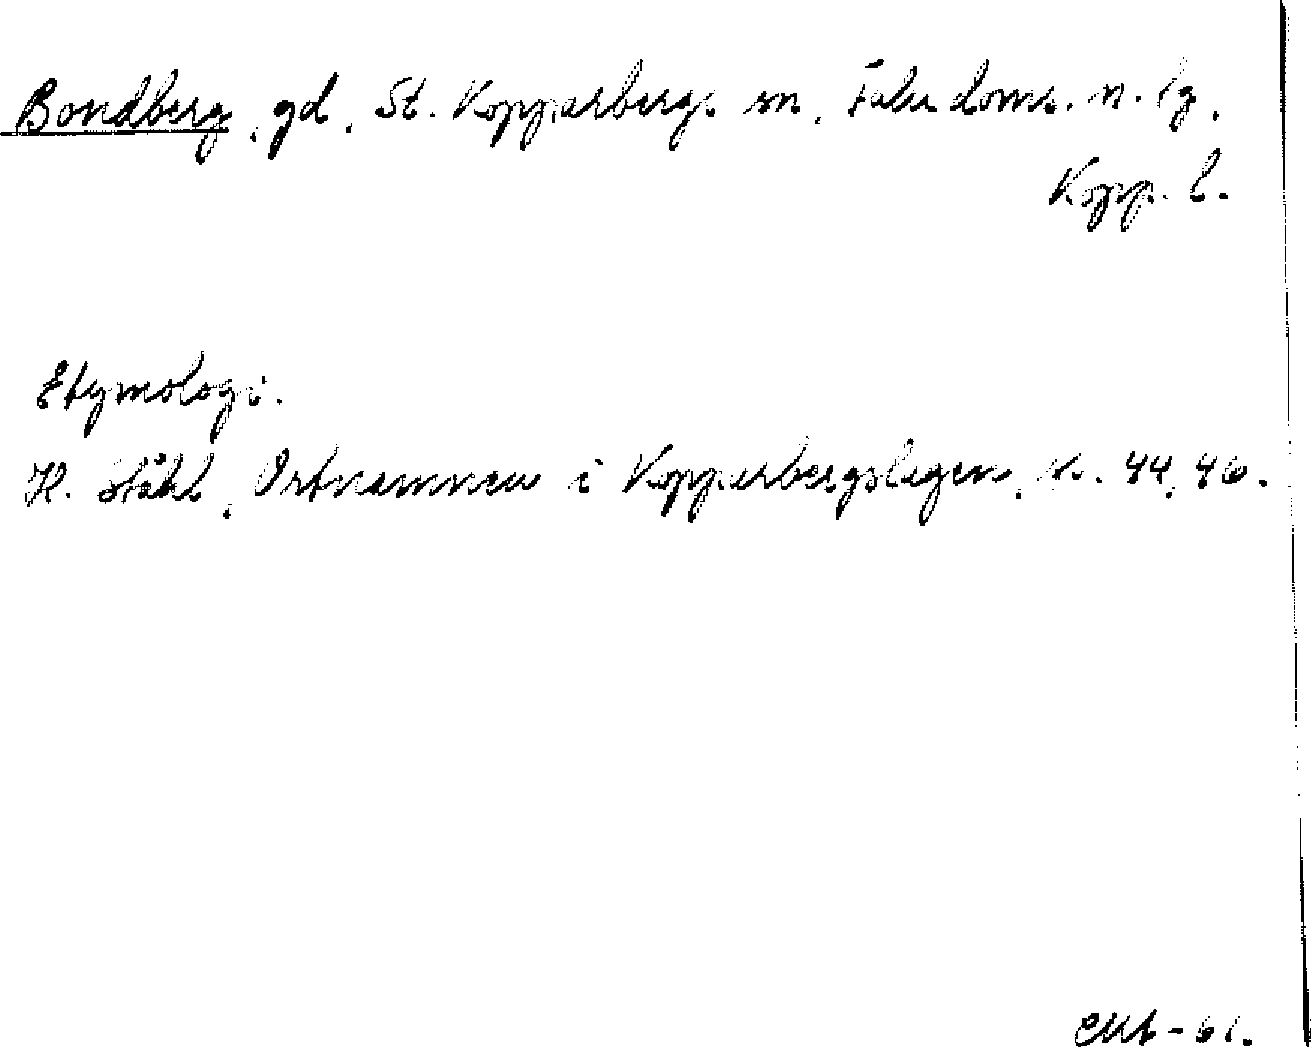 Bondberg, gd, St. Kopparbergs sn, Falu doms. n. lg,
Kopp. l.
Etymologi.
H. Ståhl, Ortnamnen i Kopparbergslagen, s. 44, 46.